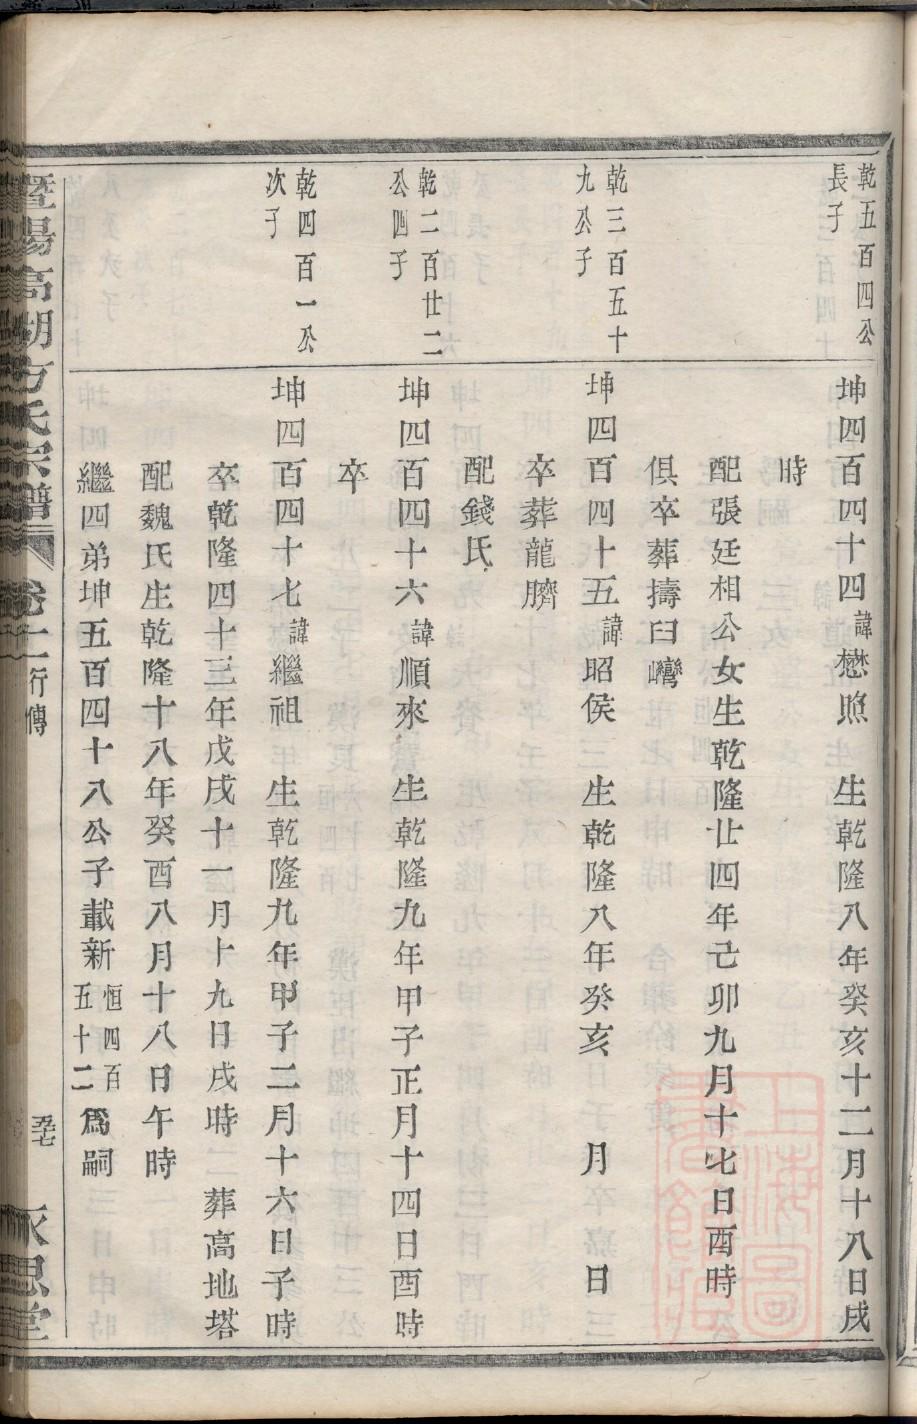 乾五百四公
長子
坤四百四十四諱懋照　生乾隆八年癸亥十二月十八日戌
時
配張廷相公女生乾隆廿四年己卯九月十七日酉時
俱卒葬擣臼巒
乾三百五十
九公子
坤四百四十五諱昭侯　生乾隆八年癸亥　月　日
卒葬龍臍
配錢氏
乾二百廿二
公四子
坤四百四十六諱順來　生乾隆九年甲子正月十四日酉時
卒
乾四百一公
次子
坤四百四十七諱繼祖　生乾隆九年甲子二月十六日子時
卒乾隆四十三年戊戌十一月十九日戌時二葬高地塔
配魏氏生乾隆十八年癸酉八月十八日午時
繼四弟坤五百四十八公子載新恒四百五十二爲嗣
暨陽高湖方氏宗譜　卷十一行傳　永思堂